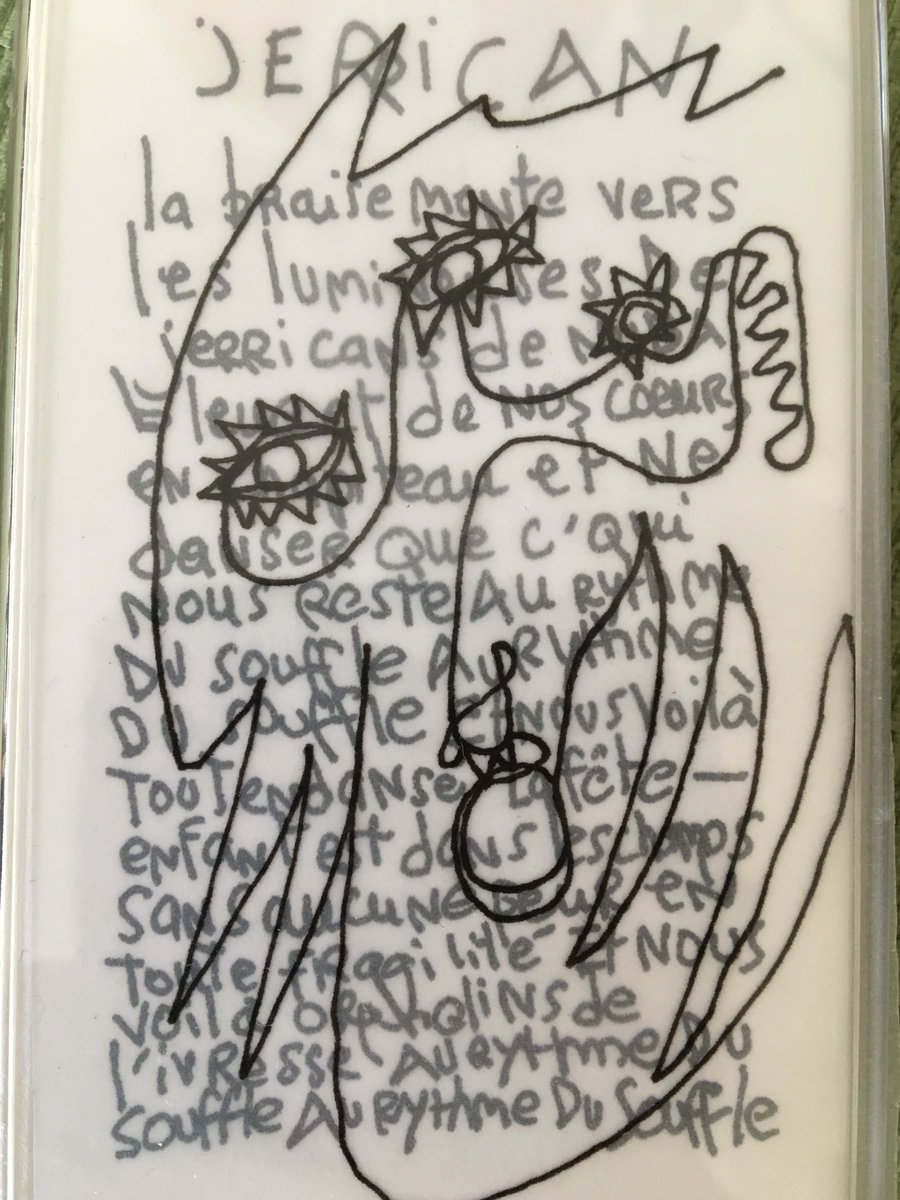 JERRICAN
la braise monte vers
les lumineuses de
jerricans de nota
et de nos coeurs
en et ne
danser que c'qui
nous reste au rythme
du souffle au rythme
du souffle et nous voilà
tout en danse la fête —
enfant est dans les champs
sans aucune peur en
toute fragilité et nous
voilà orphelins de
l'ivresse au rythme du
souffle au rythme du souffle